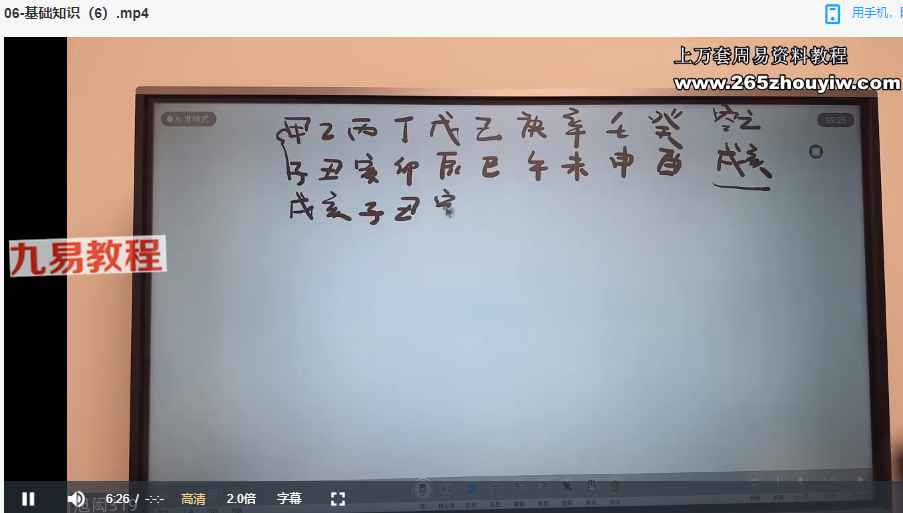 06-基础知识（6）.mp4
用手机
上万套周易资料教程
www.265zhouyiw.com
标准模式
甲 乙 丙 丁 戊 己 庚 辛 壬 癸 空亡
子 丑 寅 卯 辰 巳 午 未 申 酉 戌亥
戌 亥 子 丑 寅
九易教程
6:26 / -:-:-
高清
2.0倍
字幕